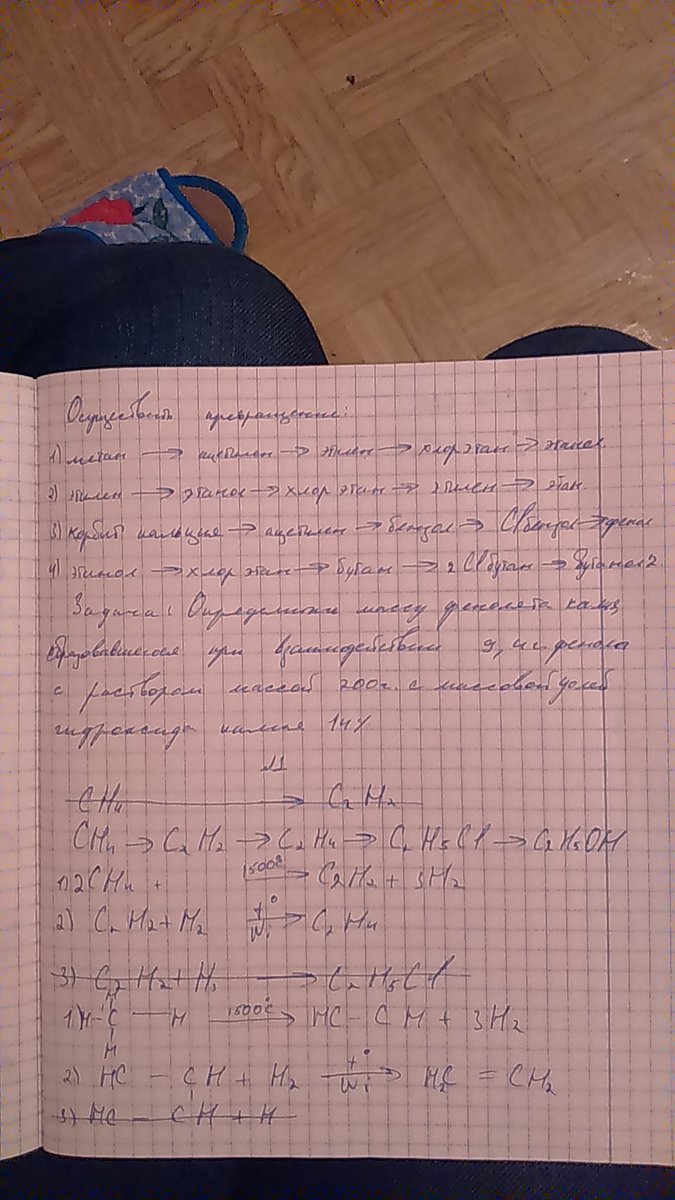 Осуществить превращение:
1) метан → ацетилен → этилен → хлорэтан → этанол.
2) этилен → этанол → хлорэтан → этилен → этан.
3) карбит кальция → ацетилен → бензол → Clбензол → фенол
4) этинол → хлорэтан → бутан → 2Clбутан → бутанол2
Задача: Определите массу фенолята калия
образовавшегося при взаимодействии 9,4г. фенола
с раствором массой 200г. с массовой долей
гидроксида калия 14%
№1
CH4 → C2H2
CH4 → C2H2 → C2H4 → C2H5Cl → C2H5OH
1) 2CH4 + 1500°C → C2H2 + 3H2
2) C2H2 + H2 t° Ni → C2H4
3) C2H2 + H2 → C2H5Cl
H
1) H-C—H 1500°C → HC-CH + 3H2
H
2) HC - CH + H2 t° Ni → H2C = CH2
3) HC - CH + H